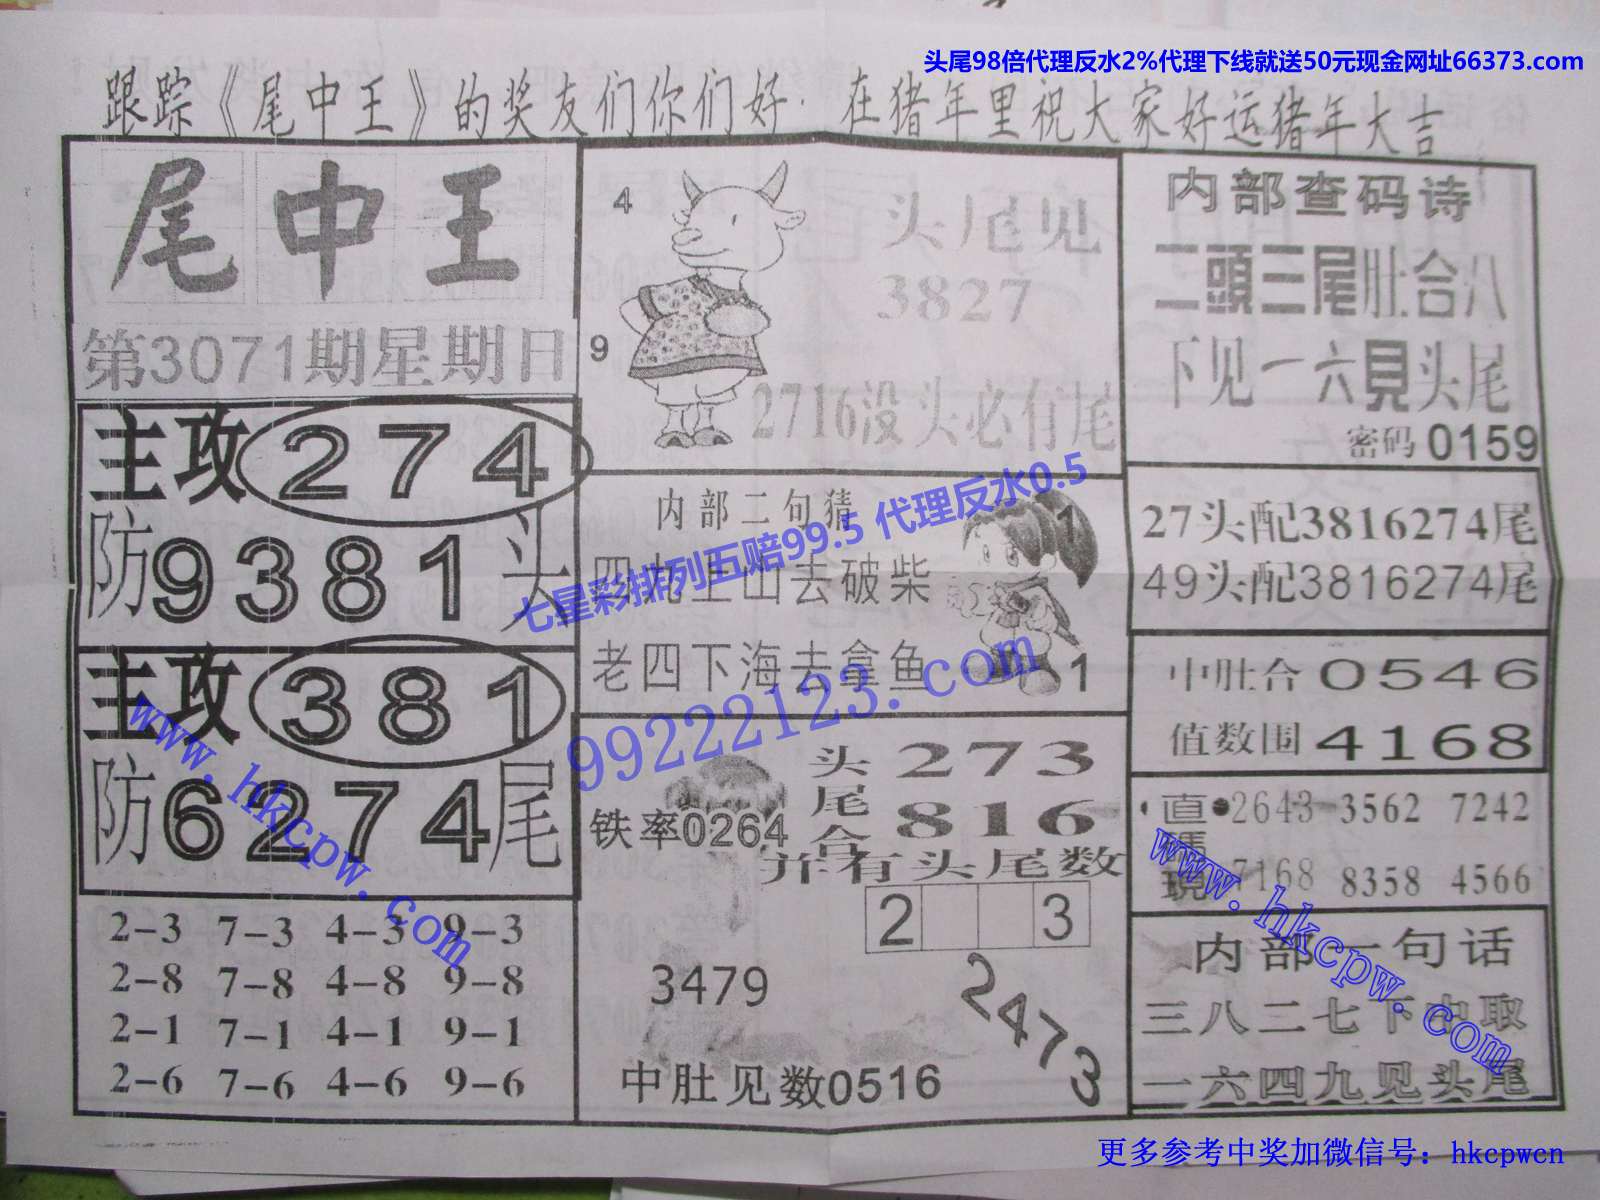 头尾98倍代理反水2%代理下线就送50元现金网址66373.com
跟踪《尾中王》的奖友们你们好·在猪年里祝大家好运猪年大吉
尾中王
第3071期星期日
主攻274
防9381头
主攻381
防6274尾
2-3 7-3 4-3 9-3
2-8 7-8 4-8 9-8
2-1 7-1 4-1 9-1
2-6 7-6 4-6 9-6
4
9
头尾见
3827
2716没头必有尾
内部二句猜
四九上山去破柴
老四下海去拿鱼
1
1
七星彩排列五赔99.5 代理反水0.5
99222123.com
头尾合
273
816
铁率0264
并有头尾数
2 3
3479
2473
中肚见数0516
内部查码诗
二頭三尾肚合八
下见一六見头尾
密码0159
27头配3816274尾
49头配3816274尾
中肚合0546
值数围4168
直碼現
2643 3562 7242
7168 8358 4566
内部一句话
三八二七下中取
一六四九见头尾
www.hkcpw.com
www.hkcpw.com
更多参考中奖加微信号：hkcpwcn